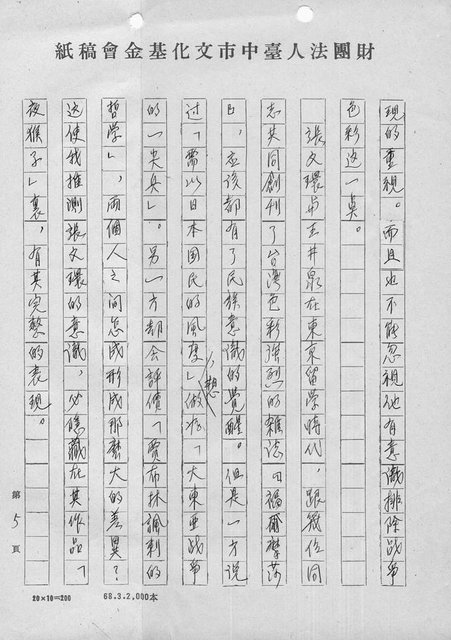 財團法人臺中市文化基金會稿紙
現的重視。而且也不能忽視他有意識排除战争
色彩这一点。
張文環与王井泉在東京留学時代，跟幾位同
志共同創刊了台湾色彩強烈的雜誌『福爾摩莎
』，应该都有了民族意識的覺醒。但是一方说
过「需以日本国民的風度」，想做为「大東亜战争
的一尖兵」。另一方却会評價「賈布抹諷刺的
哲学」，兩個人之间怎成形成那麼大的差異？
这使我推測張文環的意識，必隱藏在其作品「
夜猴子」裏，有其完整的表現。
第5頁
20×10=200
68.3.2,000本